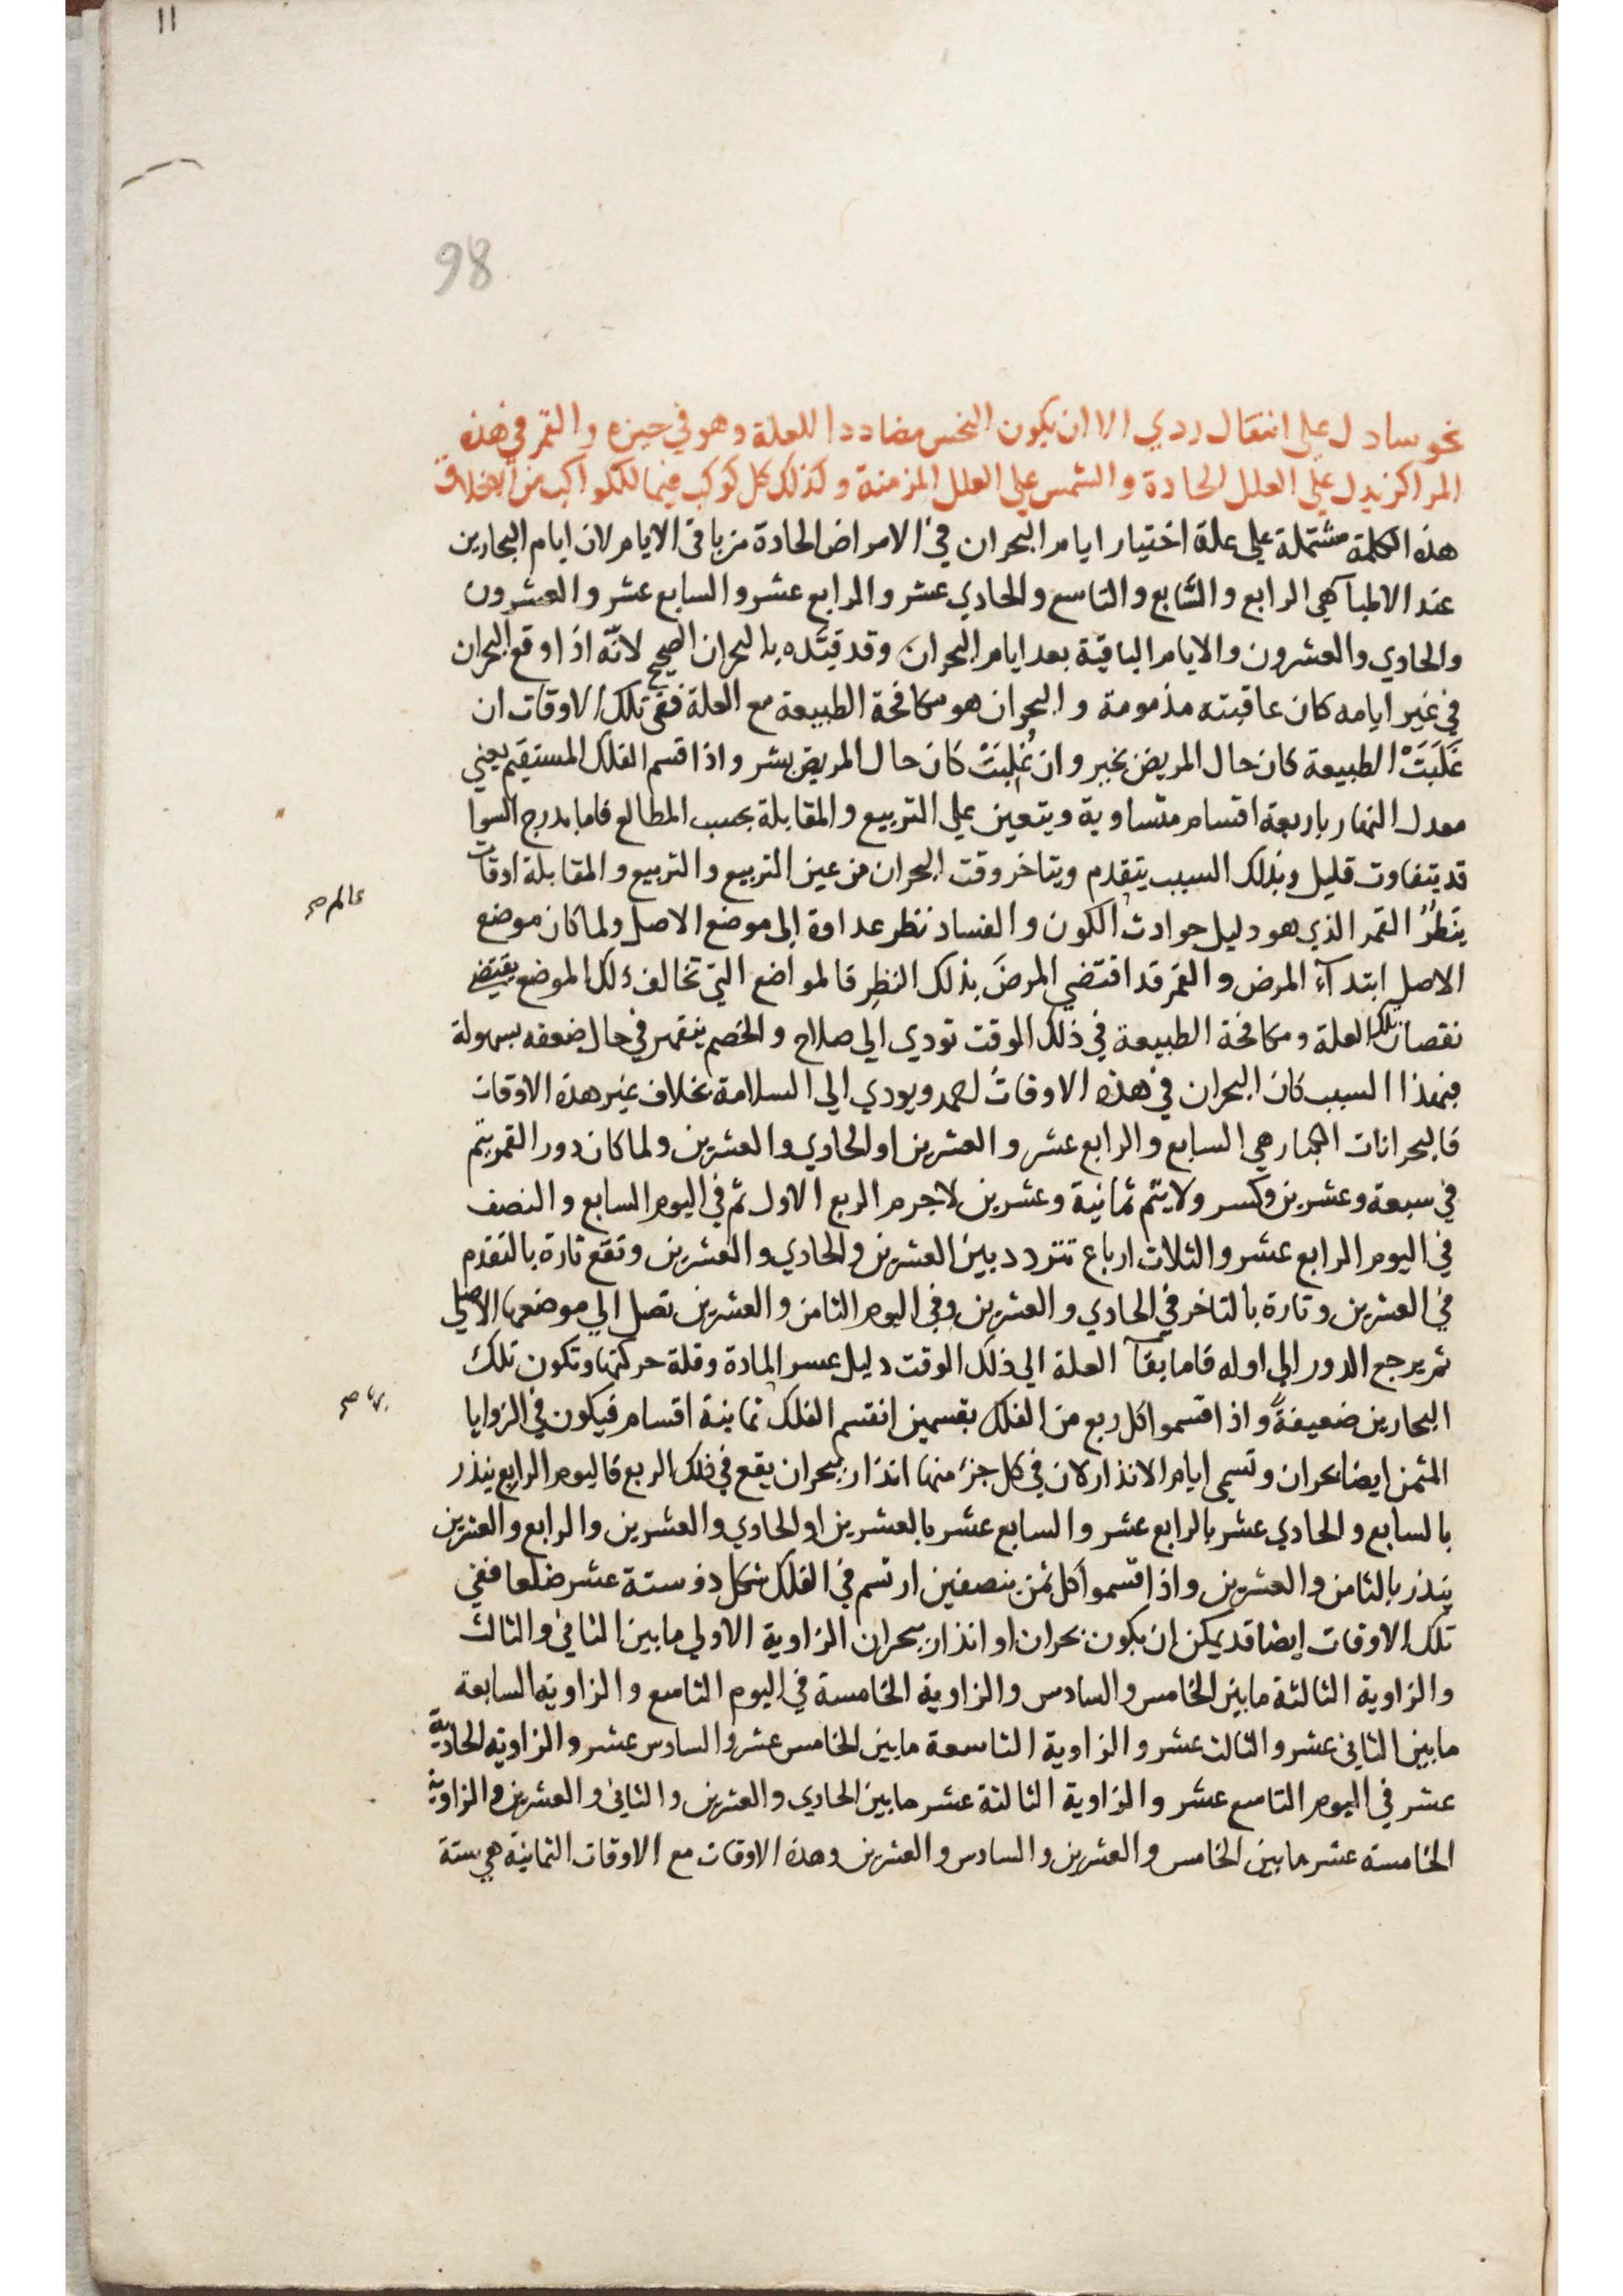 11
98
نحوسا دل على انتقال ردي الا ان يكون النحس مضاددا للعلة وهو في حيزه والقمر في هذه
المراكز يدل على العلل الحادة والشمس على العلل المزمنة وكذلك كل كوكب فيما للكواكب من الاخلاف
هذه الكلمة مشتملة على علة اختيار ايام البحران في الامراض الحادة من باقى الايام لان ايام البحارين
عند الاطباء هي الرابع والسابع والتاسع والحادي عشر والرابع عشر والسابع عشر والعشرون
والحادي والعشرون والايام الباقية بعد ايام البحران وقد قيده بالبحران الصحيح لانّه اذا وقع البحران
في غير ايامه كان عاقبته مذمومة والبحران هو مكافحة الطبيعة مع العلة ففى تلك الاوقات ان
غَلَبَتْ الطبيعة كان حال المريض بخير وان غُلِبَتْ كان حال المريض بشر واذا قسم الفلك المستقيم يعني
معدل النهار باربعة اقسام متساوية ويتعين على التربيع والمقابلة بحسب المطالع فاما بدرج السوا
قد يتفاوت قليل وبذلك السبب يتقدم ويتاخر وقت البحران من عين التربيع والتربيع والمقابلة اوقات
ينظر القمر الذي هو دليل حوادث الكون والفساد نظر عداوة الى موضع الاصل ولما كان موضع
عالم صح
الاصل ابتدآء المرض والقمر قد اقتضي المرضَ بذلك النظرِ فالمواضع التي تخالف ذلك الموضع يقتضي
نقصان تلك العلة ومكافحة الطبيعة في ذلك الوقت تودي الي صلاح والخصم ينقهر في حال ضعفه بسهولة
فبهذا السبب كان البحران في هذه الاوقات احمد ويودي الى السلامة بخلاف غير هذه الاوقات
فالبحرانات الكبار هي السابع والرابع عشر والعشرين او الحادي والعشرين ولما كان دور القمر يتم
في سبعة وعشرين وكسر ولا يتم ثمانية وعشرين لاجرم الربع الاول تم في اليوم السابع والنصف
في اليوم الرابع عشر والثلاث ارباع تتردد بين العشرين والحادي والعشرين وتقع تارة بالتقدم
في العشرين وتارة بالتاخر في الحادي والعشرين وفي اليوم الثامن والعشرين تصل الي موضعها الاصلي
ثم يرجع الدور الى اوله فاما بقآ العلة الي ذلك الوقت دليل عسر المادة وقلة حركتها وتكون تلك
البحارين ضعيفة واذا قسموا كل ربع من الفلك بقسمين انقسم الفلك ثمانية اقسام فيكون في الزوايا
المثمن ايضا بحران وتسمى ايام الانذار لان في كل جزء منها انذار ببحران يقع في ذلك الربع فاليوم الرابع ينذر
بالسابع والحادي عشر بالرابع عشر والسابع عشر بالعشرين او الحادي والعشرين والرابع والعشرين
ينذر بالثامن والعشرين واذا قسموا كل ثمن بنصفين ارتسم في الفلك شكل ذو ستة عشر ضلعا ففي
تلك الاوقات ايضا قد يمكن ان يكون بحران او انذار ببحران الزاوية الاولي ما بين الثاني والثالث
والزاوية الثالثة ما بين الخامس والسادس والزاوية الخامسة في اليوم التاسع والزاوية السابعة
ما بين الثاني عشر والثالث عشر والزاوية التاسعة ما بين الخامس عشر والسادس عشر والزاوية الحادية
عشر في اليوم التاسع عشر والزاوية الثالثة عشر ما بين الحادي والعشرين والثاني والعشرين والزاوية
الخامسة عشر ما بين الخامس والعشرين والسادس والعشرين وهذه الاوقات مع الاوقات الثمانية هي ستة